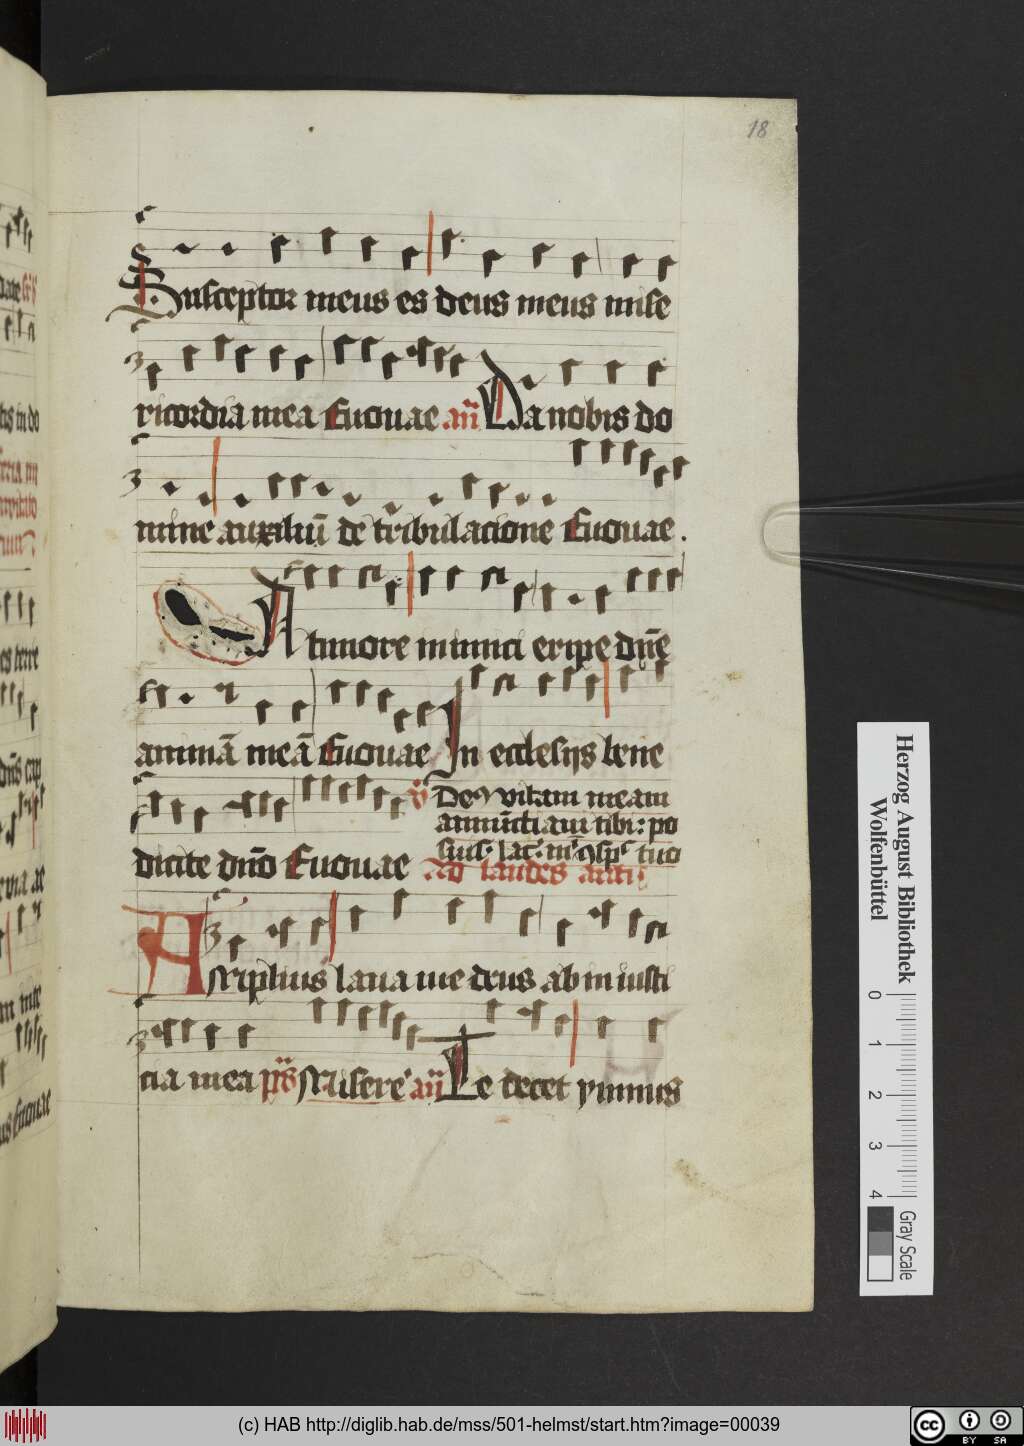 18
Susceptor meus es deus meus mise
ricordia mea Euouae an̄ Da nobis do
mine auxiliū de tribulacione Euouae .
A timore inimici eripe dn̄e
animā meā Euouae In ecclesijs bene
dicite dn̄o Euouae
v̄ Deꝰ vitam meam
annūctiaui tibi: po
tuo
Ad laudes anti
Amplius laua me deus ab in iusti
cia mea ps̄ Misere an̄ Te decet ymnus
Herzog August Bibliothek
Wolfenbüttel
0 1 2 3 4
Gray Scale
(c) HAB http://diglib.hab.de/mss/501-helmst/start.htm?image=00039
cc BY SA